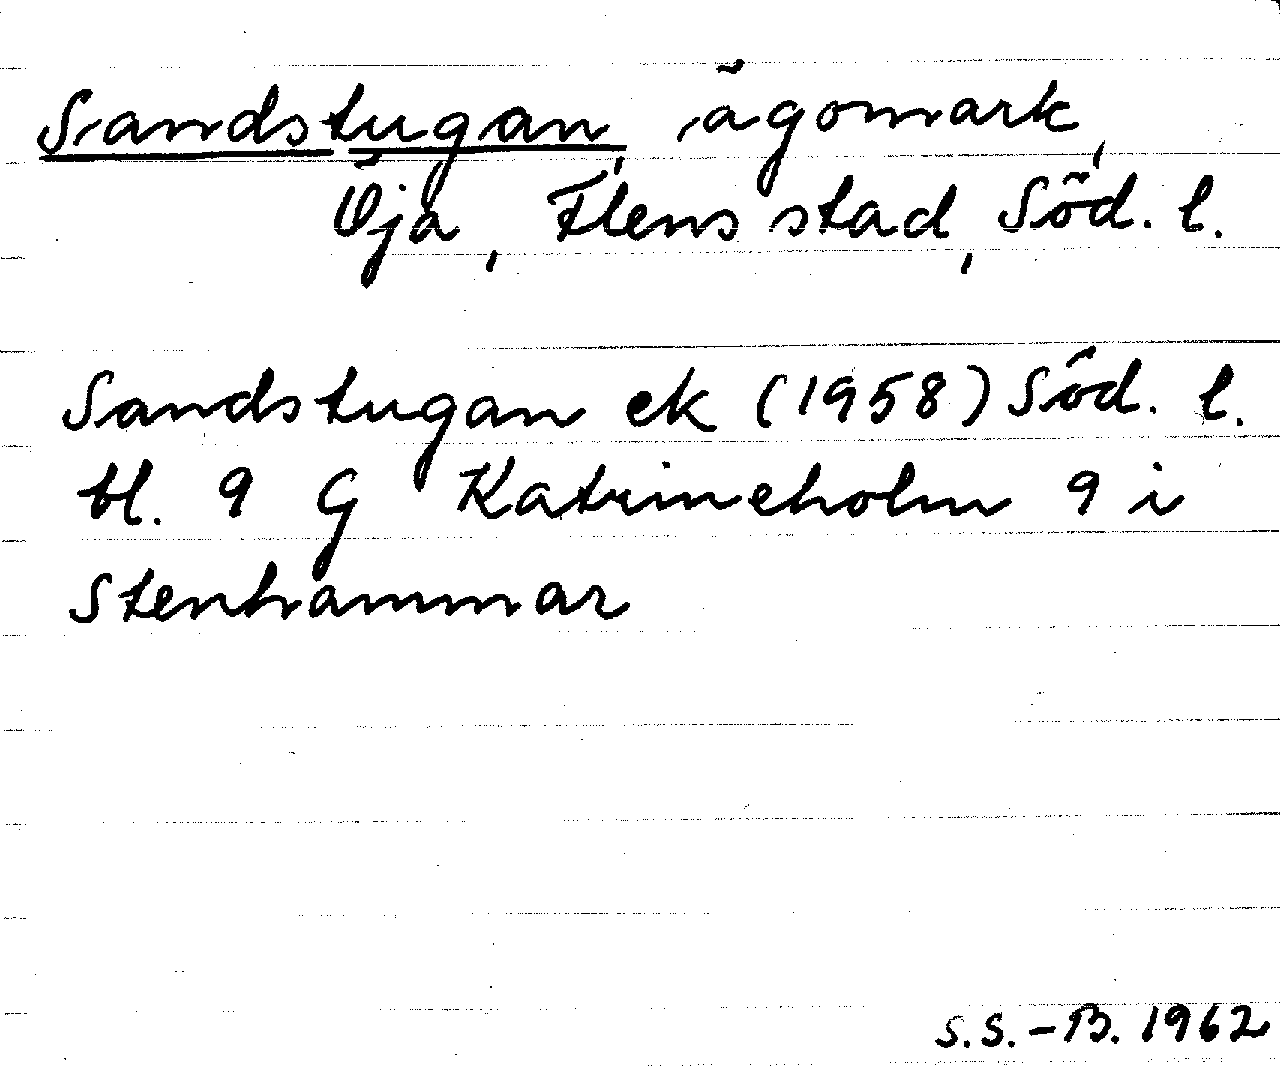 Sandstugan, ägomark,
Öja, Flens stad, Söd. l.
Sandstugan ek (1958) Söd. l.
bl. 9 G Katrineholm 9 i
Stenhammar
S.S.-B. 1962